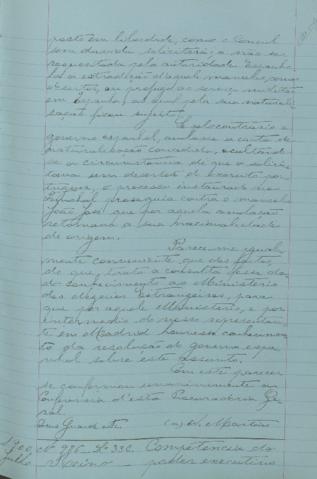 posto em liberdade, como o Consul
sem duvida solicitará; a não ser
respeitada pela autoridade hespanho
la a extradição d'aquelle mancebo, como
desertor, ou refugiado ao serviço militar
em Hespanha, ao qual pela sua naturali
sação ficou sujeito.
Se pelo contrario o
governo hespanhol, annullasse a carta de
naturalisação concedida, occultando
se a circumstancia de que o solici
tava um desertor do exercito por
tuguez, o processo instaurado em
Portugal proseguia contra o mancebo
João José que por aquella annullação
retomara a sua nacionalidade
de origem.
Parece-me igual
mente conveniente que dos factos,
de que trata a consulta fosse da
do conhecimento ao Ministerio
dos Negocios Estrangeiros, para
que por aquelle Ministerio, e por
intermedio do nosso representan
te em Madrid houvesse conhecimen
to da resolução do governo hespa
nhol sobre este assumpto.
Com este parecer
se conformou unanimemente a
Conferencia d'esta Procuradoria Ge
ral.
Deus Guarde etc (a)
1900 Nº 986 Lº 33C Competencia do
Julho poder executivo